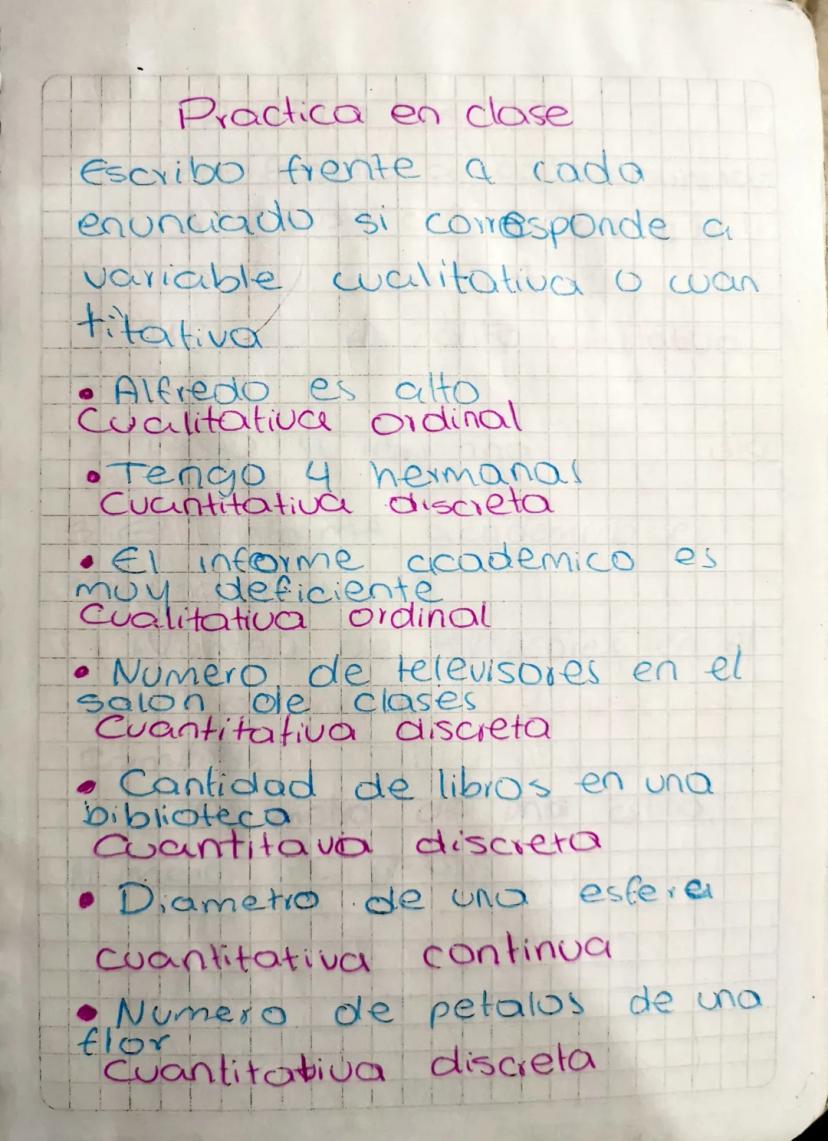 Practica en clase
Escribo frente a cada
enunciado si corresponde a
variable cualitativa o cuan
titativa
• Alfredo es alto
Cualitativa ordinal
• Tengo 4 hermanas
Cuantitativa discreta
• El informe academico es
muy deficiente
Cualitativa ordinal
• Numero de televisores en el
salon de clases
Cuantitativa discreta
• Cantidad de libros en una
biblioteca
Cuantitava discreta
• Diametro de una esfera
cuantitativa continua
• Numero de petalos de una
flor
Cuantitativa discreta